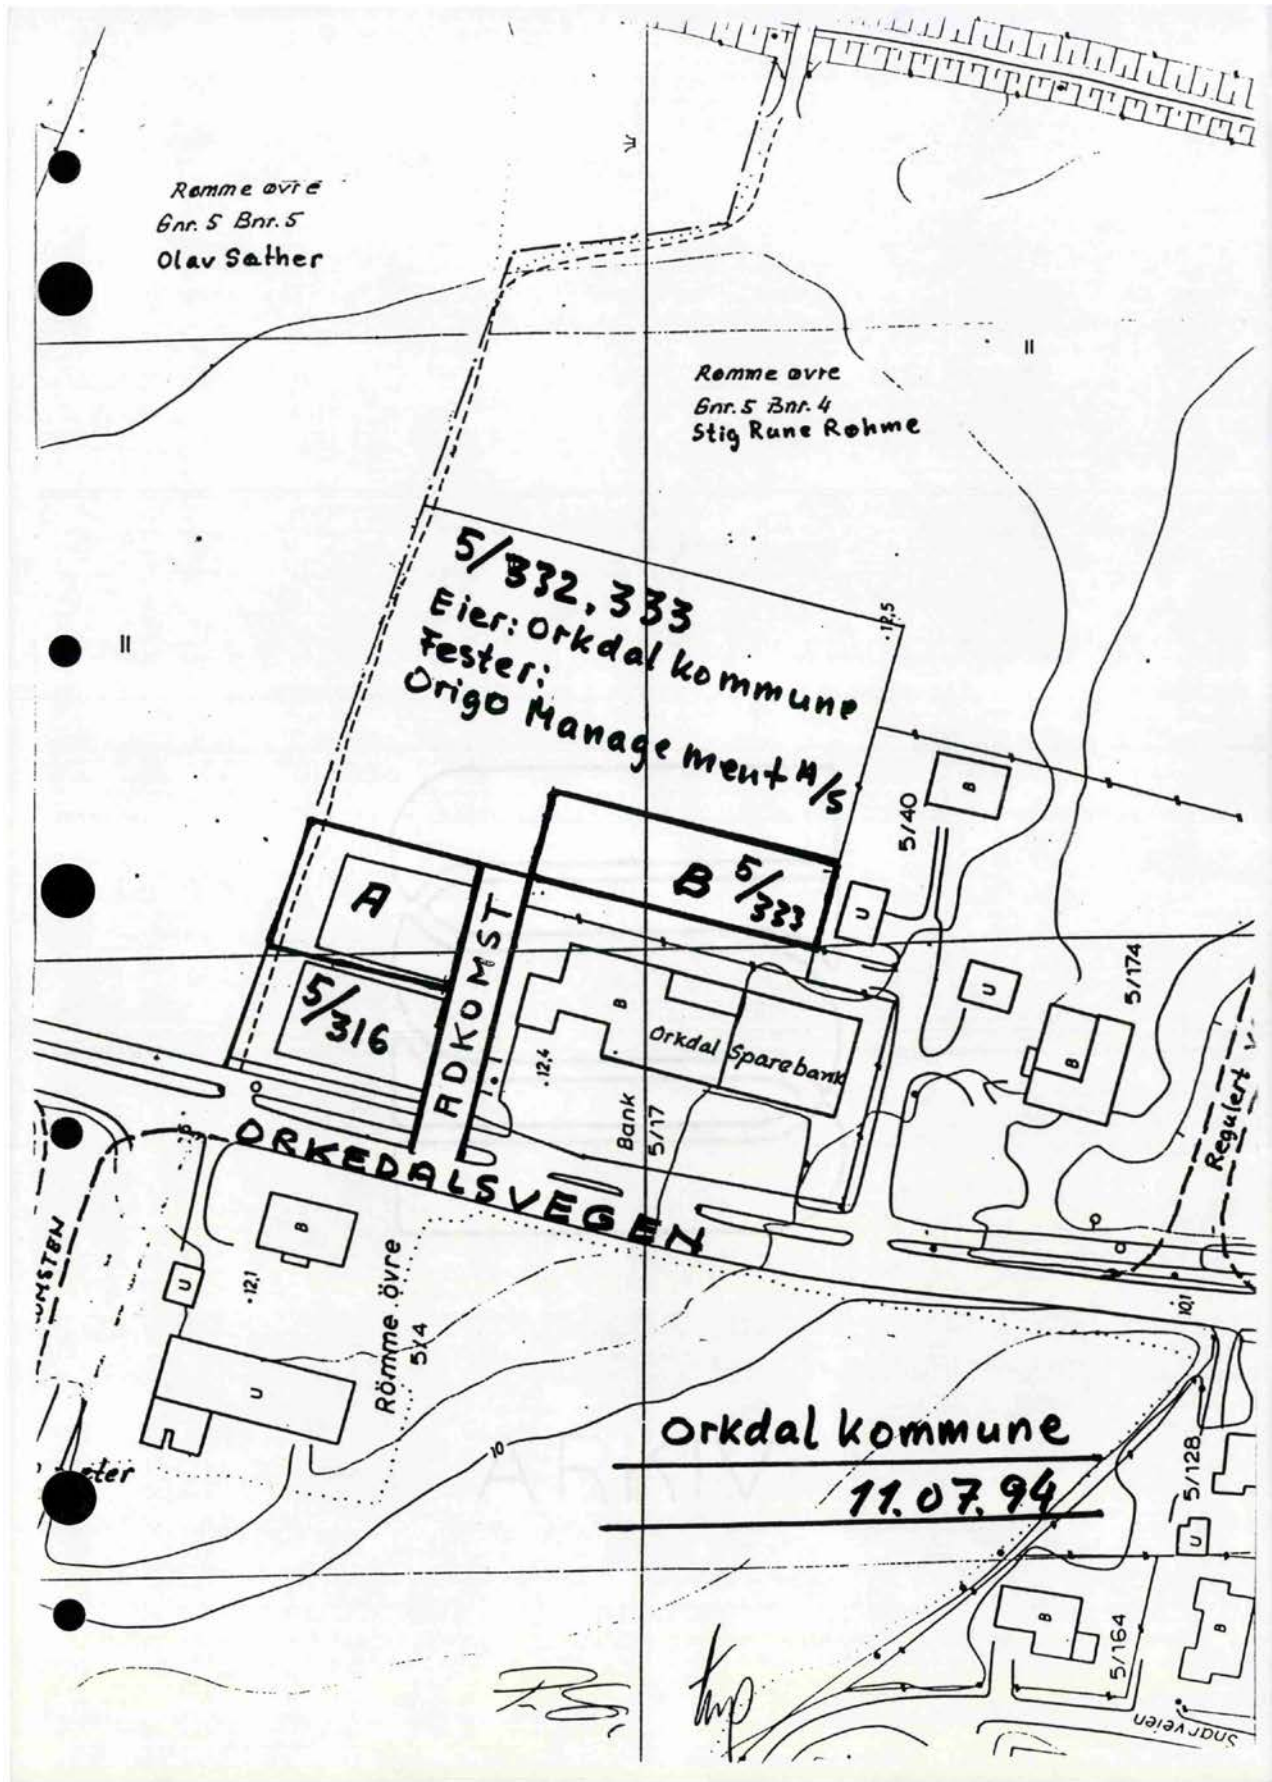 Rømme øvre
Gnr. 5 Bnr. 5
Olav Sæther
Rømme øvre
Gnr. 5 Bnr. 4
Stig Rune Røhme
5/332, 333
Eier: Orkdal kommune
Fester:
Origo Management A/S
12,5
B
5/40
A
B 5/333
U
ADKOMST
5/316
B
Orkdal Sparebank
12,4
Bank
5/17
U
B
5/174
Regulert
ORKEDALSVEGEN
B
U
12,1
U
Römme övre
5/4
10
10,1
Orkdal kommune
11.07.94
5/128
U
B
5/164
B
Snarveien